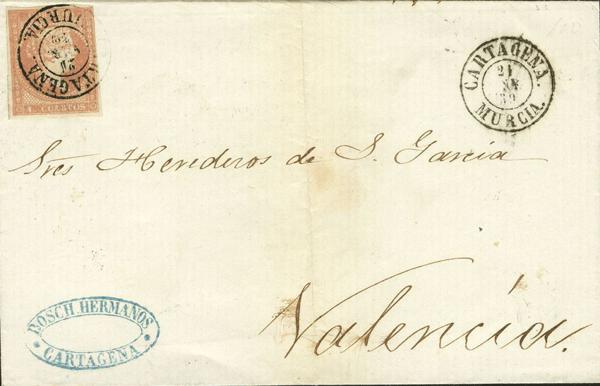 CARTAGENA.
MURCIA.
CUARTOS
CARTAGENA.
21
59
MURCIA.
Sres Herederos de S. García
Valencia.
BOSCH HERMANOS
CARTAGENA